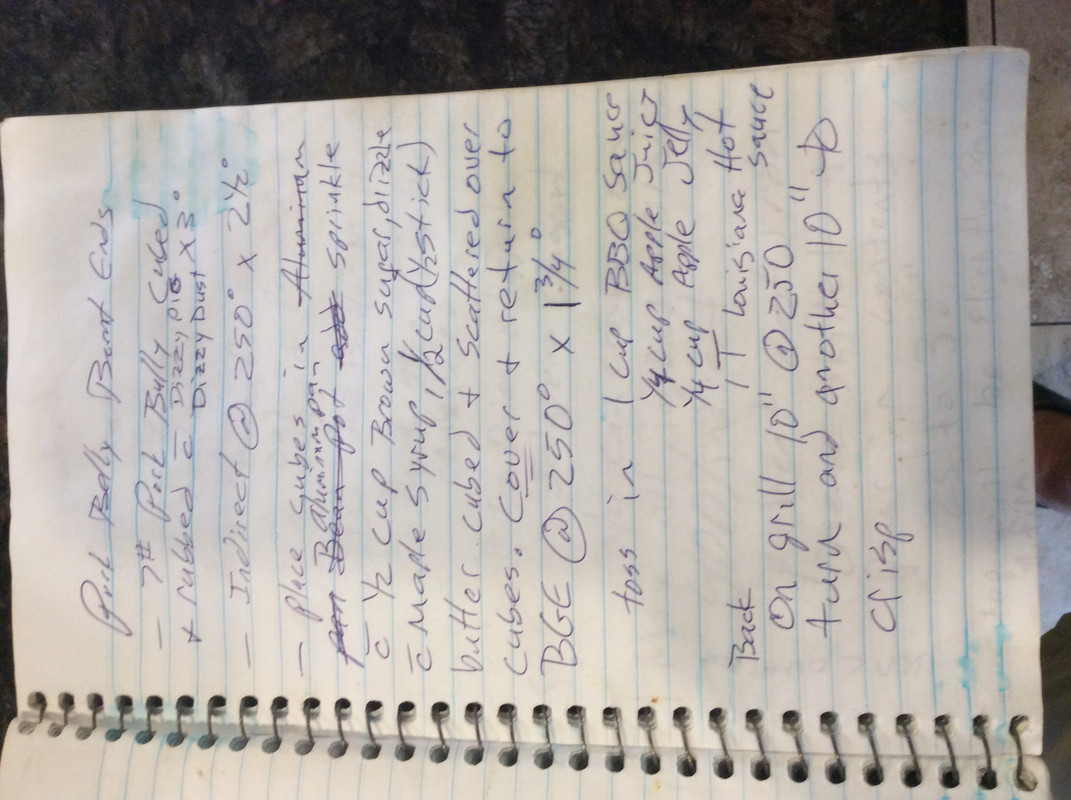 Pork Belly Burnt Ends
- 7# Pork Bully Cubed
+ rubbed c̄ Dizzy pig
Dizzy Dust x 3°
- Indirect @ 250° x 2 1/2°
- Place cubes in Aluminum
Aluminum pan
Bean Pot sprinkle
c̄ 1/2 cup Brown sugar, drizzle
c̄ maple syrup, 1/2 cup (1/2 stick)
butter cubed + scattered over
cubes. Cover + return to
BGE @ 250° x 1 3/4°
toss in 1 cup BBQ Sauce
1/4 cup Apple Juice
1/4 cup Apple Jelly
1 T Louisiana Hot
Sauce
Back
On grill 10" @ 250
turn and another 10" to
crisp